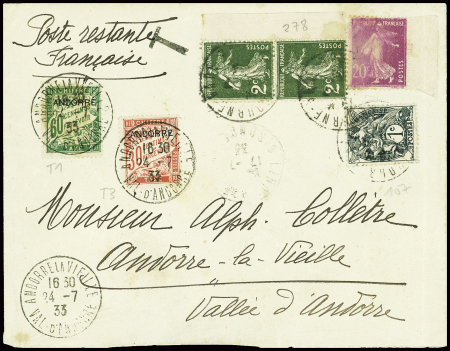 Poste restante
Française
T
278
POSTES
2c
POSTES
2c
20c
POSTES
1c
ANDORRE
60
ANDORRE
30
ANDORRE LA VIEILLE
16 30
24 -7
33
VAL D'ANDORRE
T1
T3
107
Monsieur Alph. Collètre
Andorre-la-Vieille
Vallée d'Andorre
ANDORRE LA VIEILLE
16 30
24 -7
33
VAL D'ANDORRE